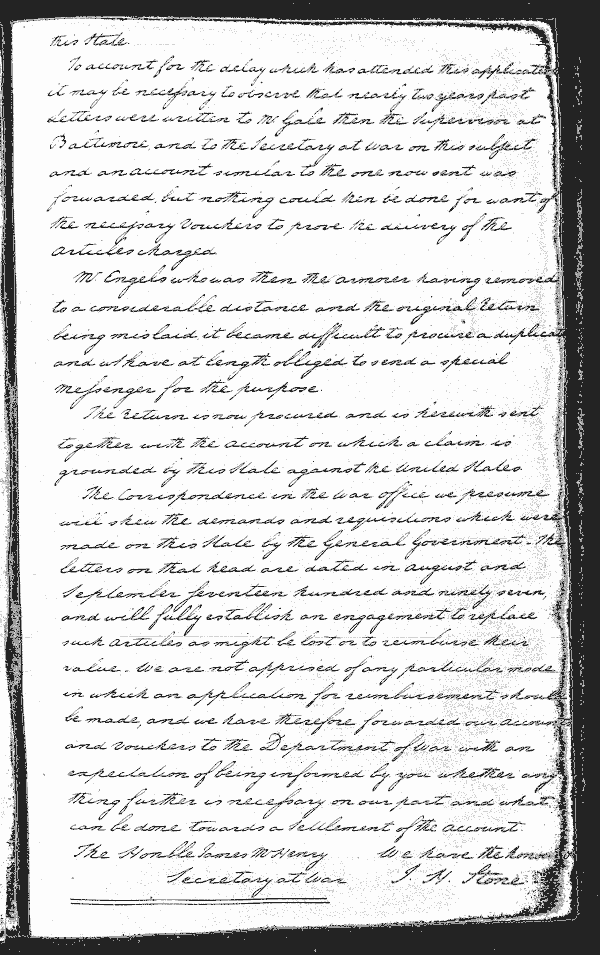 this State.
To account for the delay which has attended this application
it may be necessary to observe that nearly two years past
Letters were written to Mr Gale then the Supervisor at
Baltimore, and to the Secretary at War on this subject
and an account similar to the one now sent was
forwarded, but nothing could then be done for want of
the necessary Vouchers to prove the delivery of the
articles charged
Mr Engels who was then the armorer having removed
to a considerable distance and the original Return
being mislaid it became difficult to procure a duplicate
and we have at length obliged to send a special
messenger for the purpose.
The Return is now procured and is herewith sent
together with the account on which a claim is
grounded by this State against the United States
The Correspondence in the War office we presume
will shew the demands and requisitions which were
made on this State by the General Government - The
letters on that head are dated in August and
September seventeen hundred and ninety seven,
and will fully establish an engagement to replace
such articles as might be lost or to reimburse their
value - We are not apprised of any particular mode
in which an application for reimbursement should
be made, and we have therefore forwarded our account
and vouchers to the Department of War with an
expectation of being informed by you whether any
thing further is necessary on our part and what
can be done towards a settlement of the account
The Honble James McHenry We have the honor
Secretary at War J. H. Stone